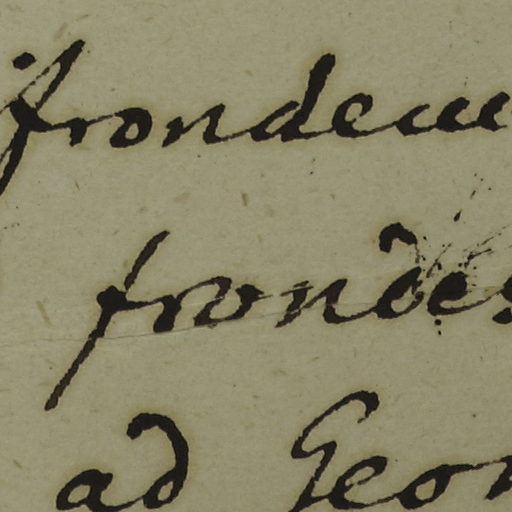 frondem
frondes
ad Geor